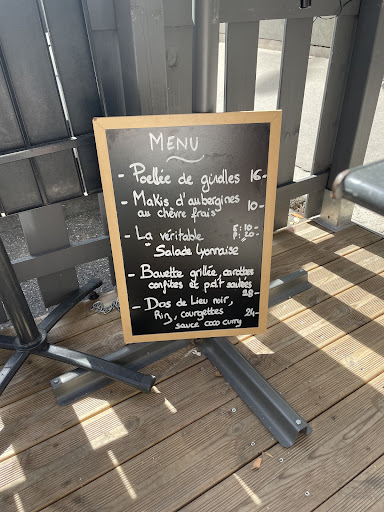 MENU
- Poellée de girolles 16 -
- Makis d'aubergines
au chèvre frais 10 -
- La véritable P: 10 -
G: 20 -
"Salade Lyonnaise
- Bavette grillée, carottes
confites et p'tit sautées
28 -
- Dos de Lieu noir,
Riz, courgettes 24 -
sauce coco curry